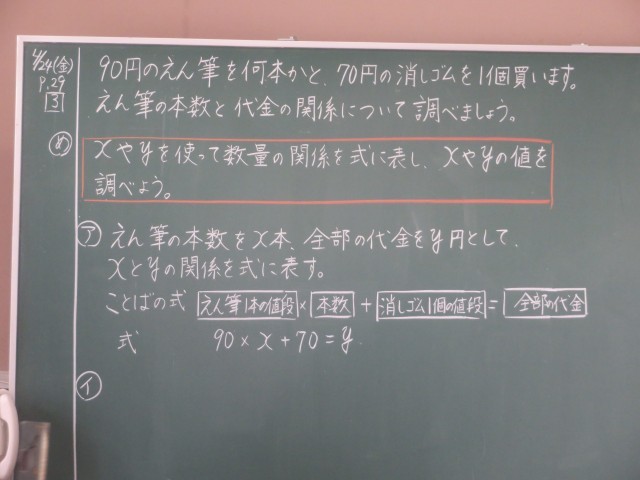 4/24(金)
P.29
3
90円のえん筆を何本かと、70円の消しゴムを1個買います。
えん筆の本数と代金の関係について調べましょう。
め
xやyを使って数量の関係を式に表し、xやyの値を
調べよう。
ア えん筆の本数をx本、全部の代金をy円として、
xとyの関係を式に表す。
ことばの式 えん筆1本の値段×本数+消しゴム1個の値段=全部の代金
式 90×x+70=y.
イ